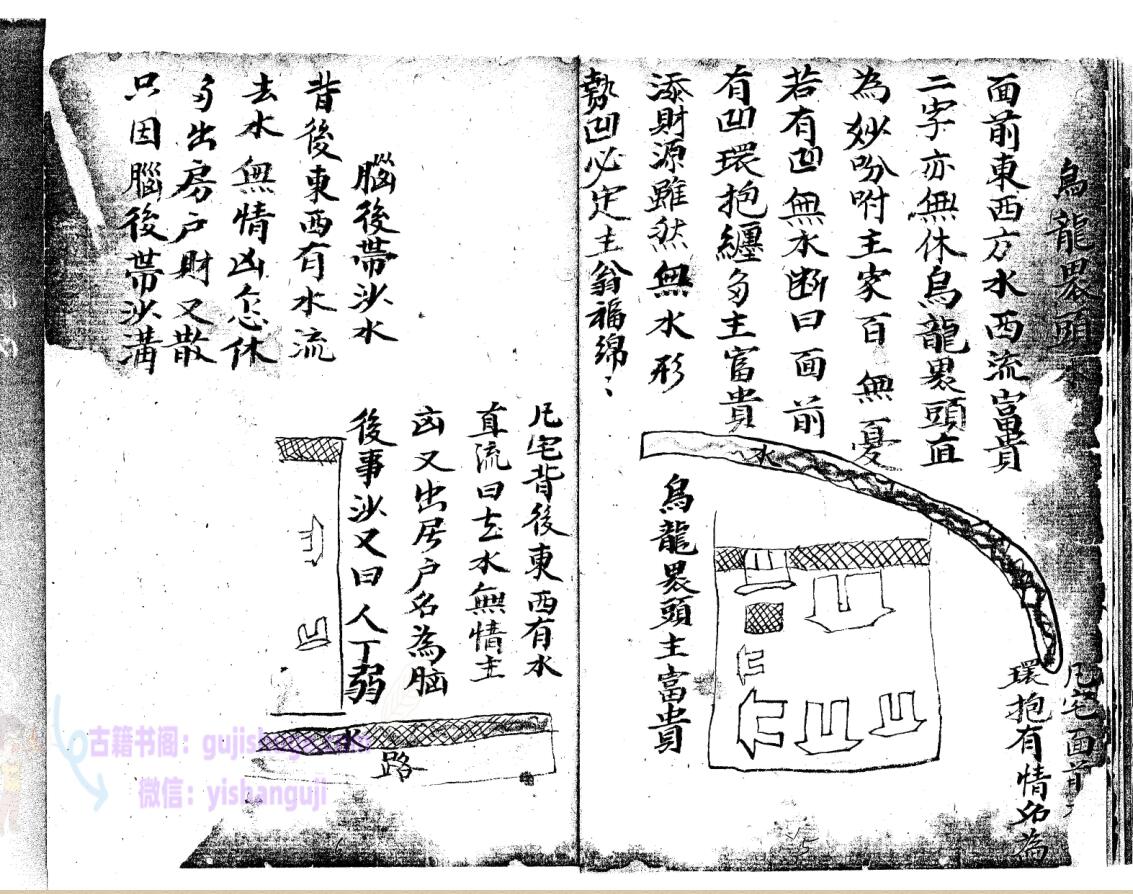 烏龍裹頭水
面前東西方水西流富貴
二字亦無休烏龍裹頭直
為妙吩咐主家百無憂
若有凹無水断曰面前
有凹環抱纏多主富貴
添財源雖然無水形
勢凹必定主翁福绵〻
凡宅面前
環抱有情名為
烏龍裹頭主富貴
水
腦後帶沙水
背後東西有水流
去水無情凶怎休
多出房户財又散
只因腦後帶沙溝
凡宅背後東西有水
直流曰去水無情主
凶又出居户名為脳
後事沙又曰人丁弱
水
路
古籍书阁：gujishuge.com
微信：yishanguji